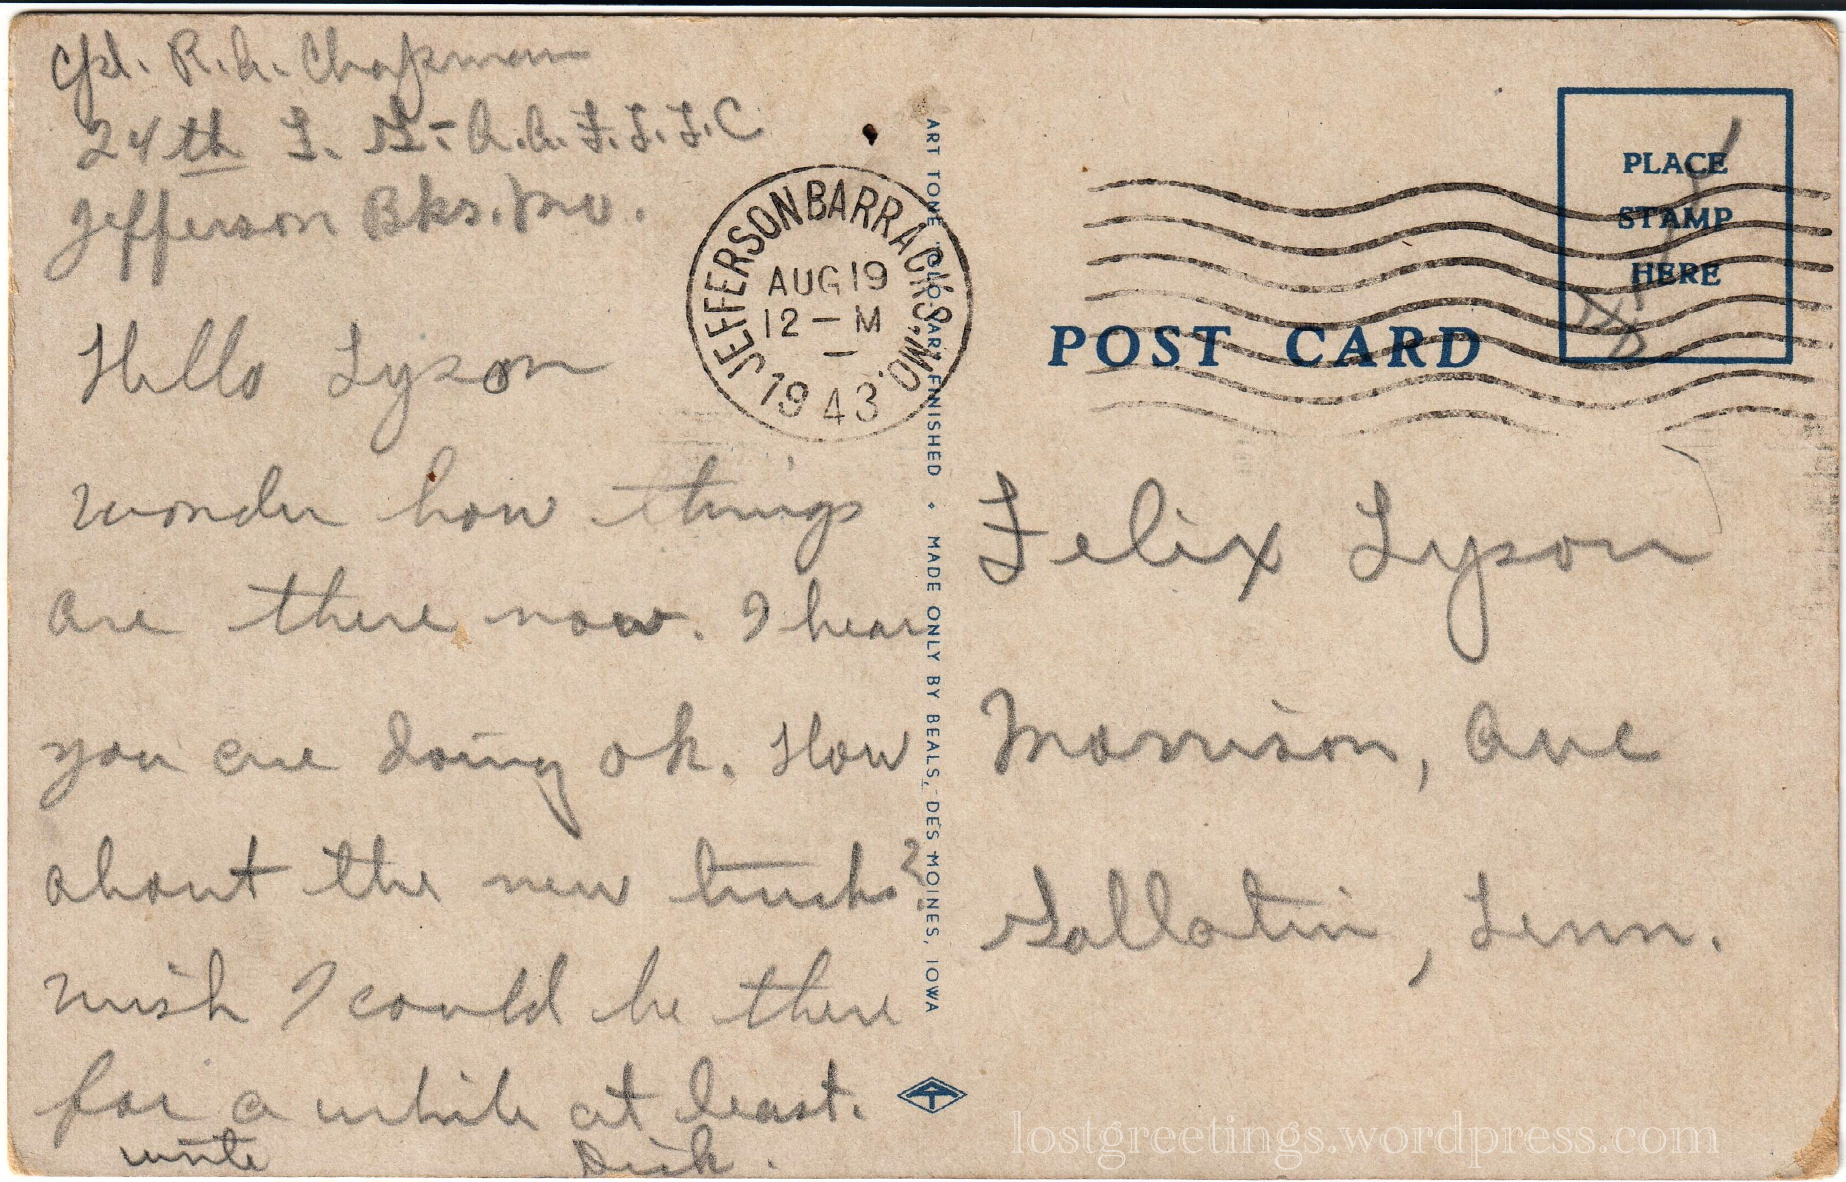 Cpl. R.A. Chapman
24th T. G. - A.A.F.T.T.C
Jefferson Bks. Mo.
Hello Lyson
wonder how things
are there now. I hear
you are doing ok. How
about the new trucks?
wish I could be there
for a while at least.
write Dick.
JEFFERSON BARRACKS, MO.
AUG 19
12 - M
1943
ART TONE "GLO-VAR" FINISHED ♦ MADE ONLY BY BEALS, DES MOINES, IOWA
PLACE
STAMP
HERE
POST CARD
Felix Lyson
Morrison, Ave
Gallatin, Tenn.
lostgreetings.wordpress.com